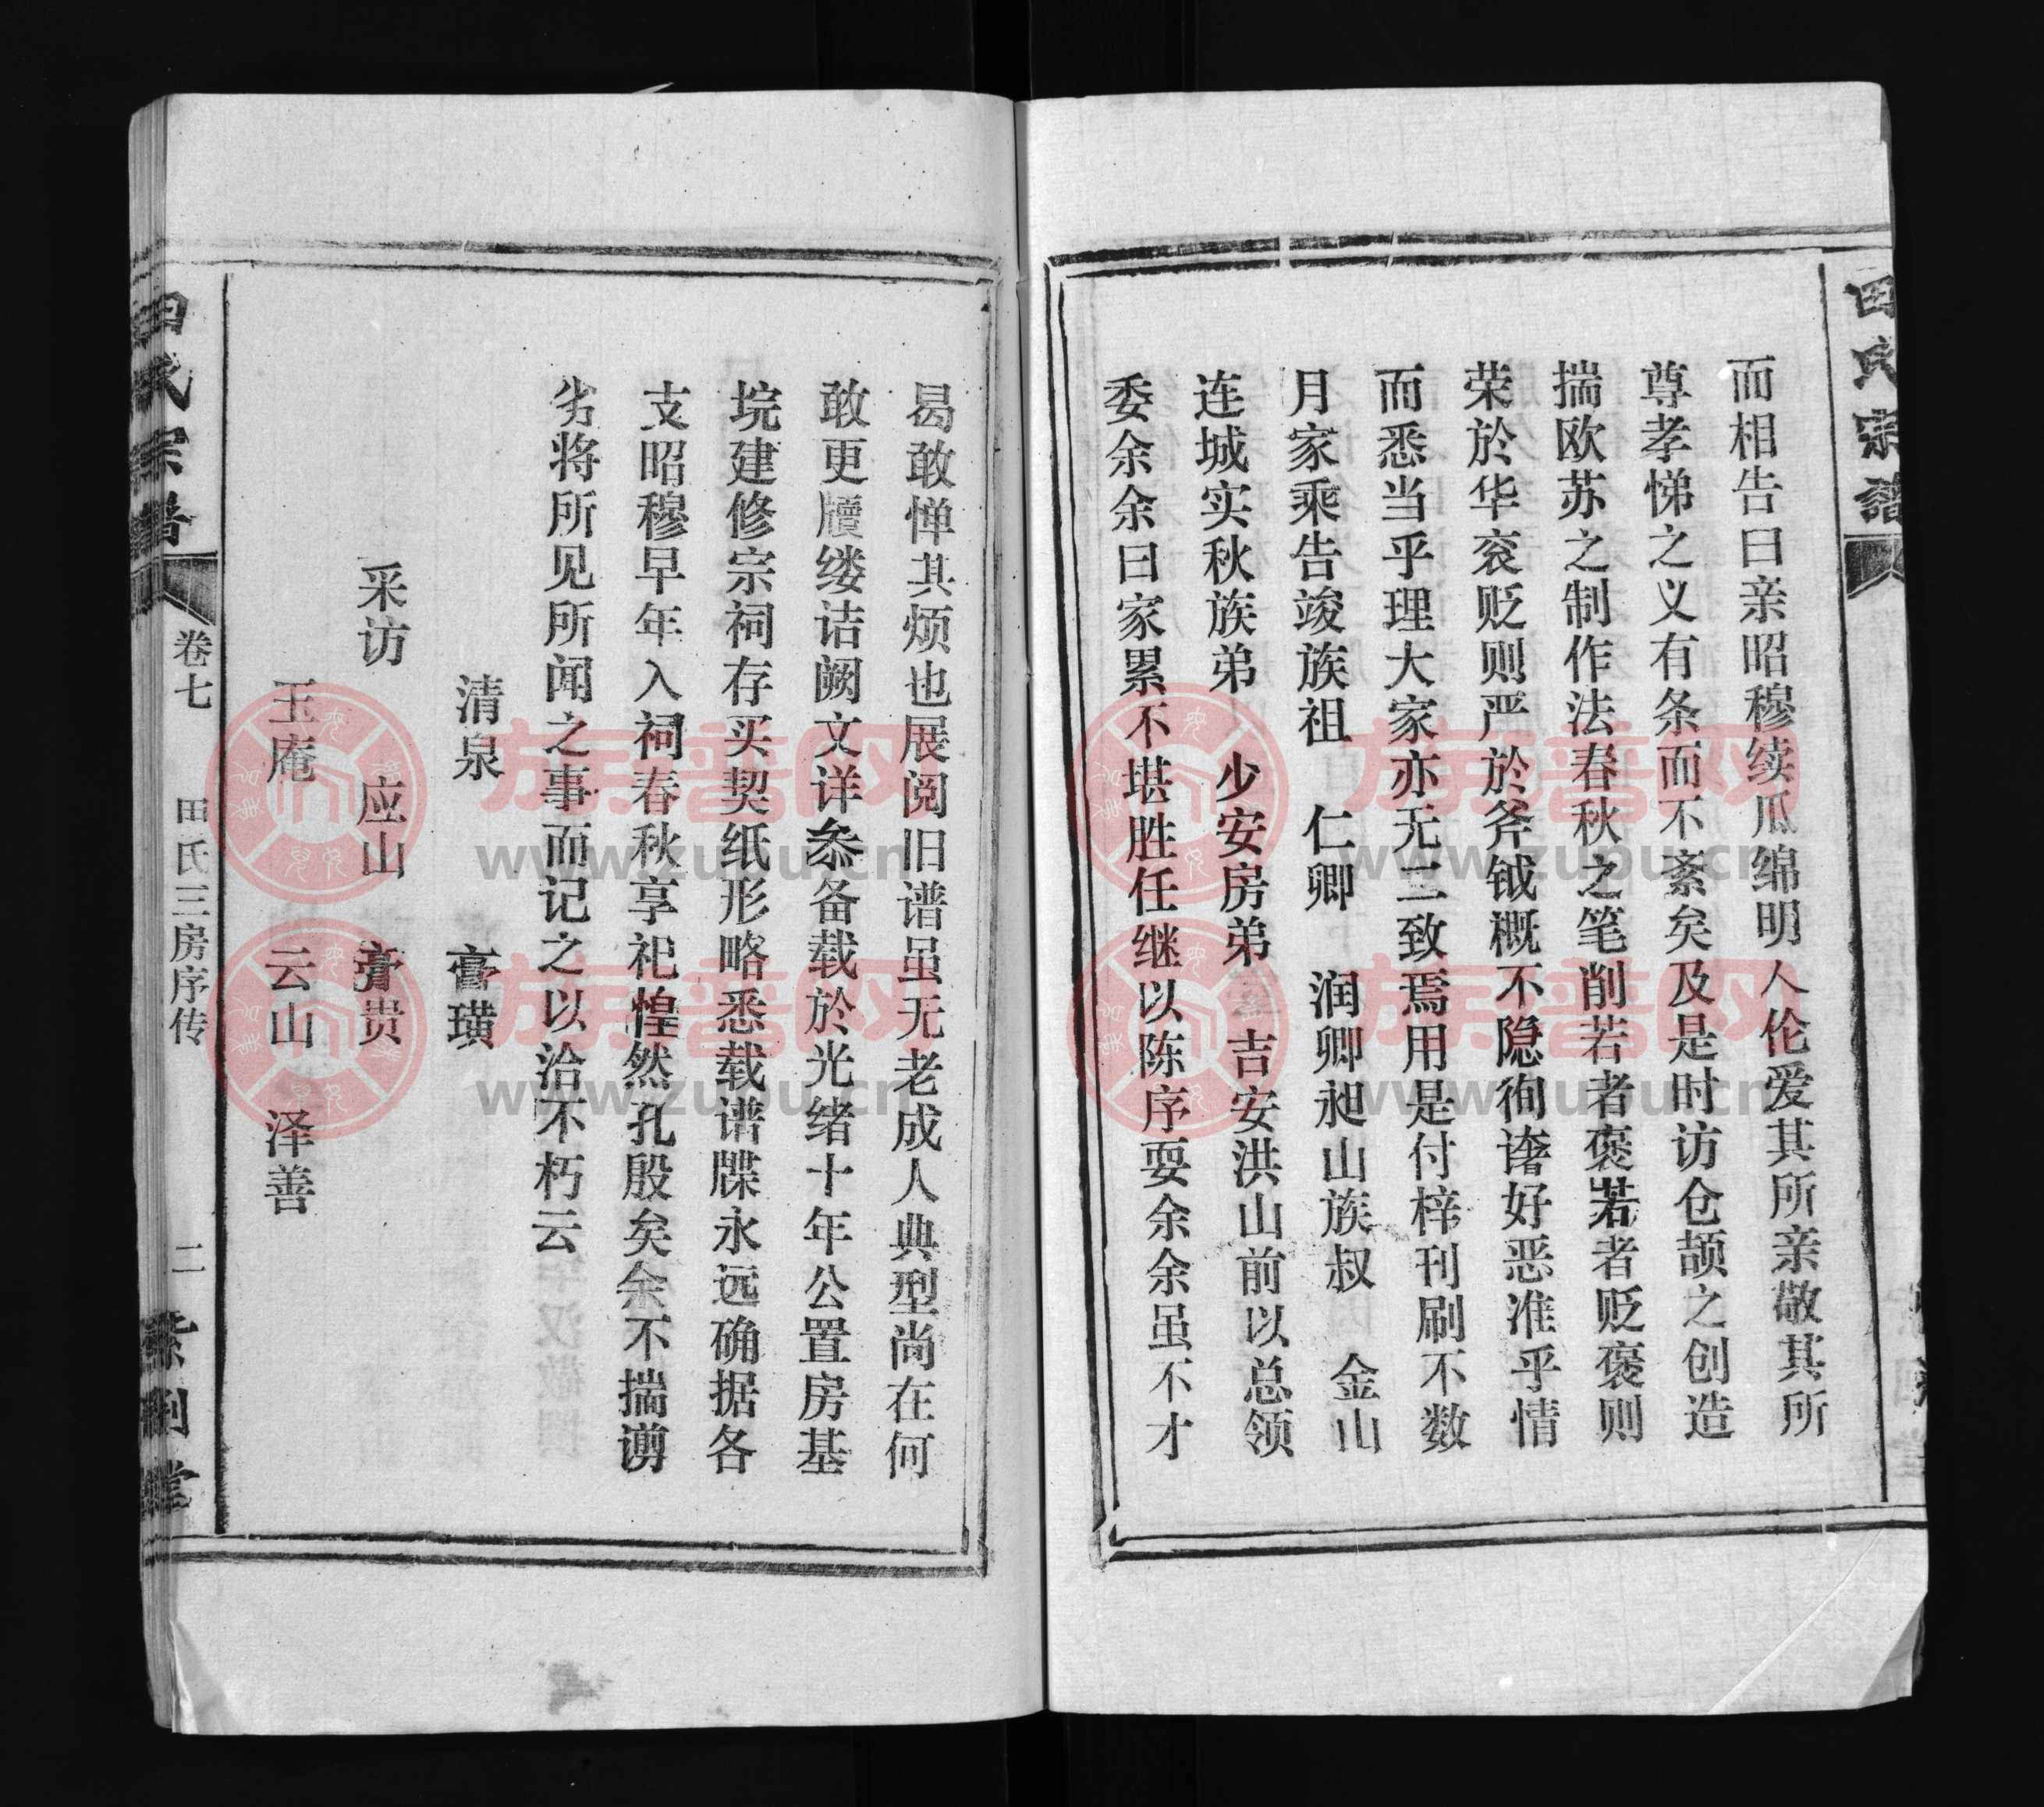 田氏宗谱
而相告曰亲昭穆续瓜绵明人伦爱其所亲敬其所
尊孝悌之义有条而不紊矣及是时访仓颉之创造
揣欧苏之制作法春秋之笔削若者褒若者贬褒则
荣於华衮贬则严於斧钺概不隐徇谵好恶准乎情
而悉当乎理大家亦无二致焉用是付梓刊刷不数
月家乘告竣族祖 仁卿 润卿昶山族叔 金山
连城实秋族弟 少安房弟 吉安洪山前以总领
委余余曰家累不堪胜任继以陈序耍余余虽不才
曷敢惮其烦也展阅旧谱虽无老成人典型尚在何
敢更牍缕诘阙文详叅备载於光绪十年公置房基
垸建修宗祠存买契纸形略悉载谱牒永远确据各
支昭穆早年入祠春秋享祀惶然孔殷矣余不揣谫
劣将所见所闻之事而记之以洽不朽云
清泉 霱璜
采访 应山 霱贵
玉庵 云山 泽善
田氏宗谱
卷七 田氏三房序传 二 紫荆堂
族谱网
www.zupu.cn
族谱网
www.zupu.cn
族谱网
www.zupu.cn
族谱网
www.zupu.cn